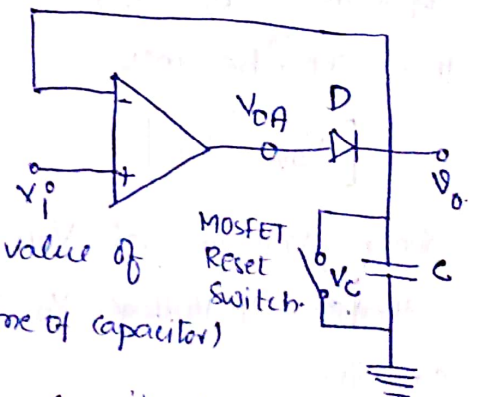 VOA D
-
+
Vi
Vo
MOSFET
Reset
Switch.
VC
C
value of
me of capacitor)